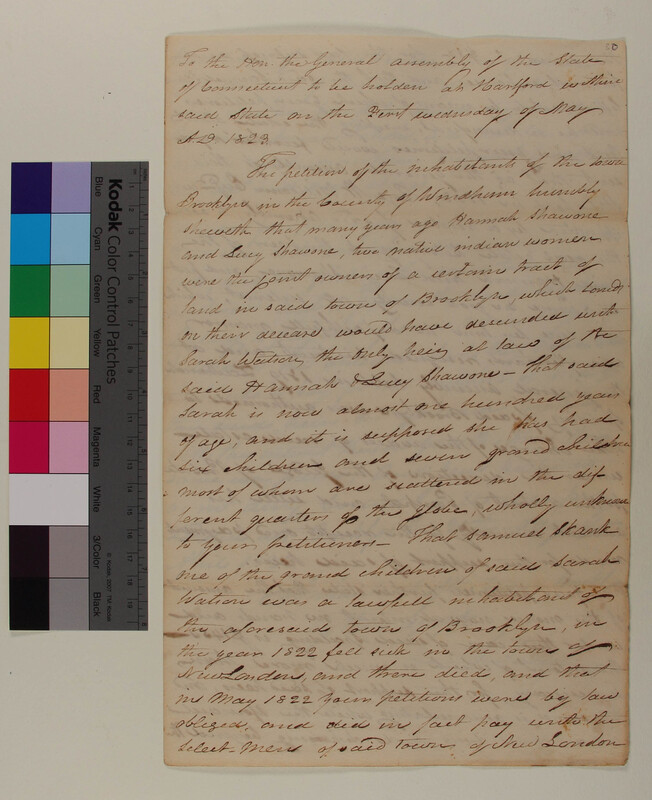 80
To the Hon. the General assembly of the State
of Connecticut to be holden at Hartford within
said State on the First wednesday of May
A.D. 1823
The petition of the inhabitants of the town
Brooklyn in the County of Windham humbly
sheweth that many years ago Hannah Shawone
and Lucy Shawone, two native indian women
were the joint owners of a certain tract of
land in said town of Brooklyn, which land,
on their decease would have descended unto
Sarah Watson, the only heir at law of the
said Hannah & Lucy Shawone - that said
Sarah is now almost one hundred years
of age, and it is supposed she has had
six children and seven grand children
most of whom are scattered in the dif
ferent quarters of the globe, wholly unknown
to your petitioners - That Samuel Skank
one of the grand children of said Sarah
Watson was a lawfull inhabitant of
the aforesaid town of Brooklyn, in
the year 1822 fell sick in the town of
New London, and there died, and that
in May 1822 your petitions were by law
obliged, and did in fact pay unto the
Select-Men of said town of New London
Kodak Color Control Patches
Blue
Cyan
Green
Yellow
Red
Magenta
White
3/Color
Black